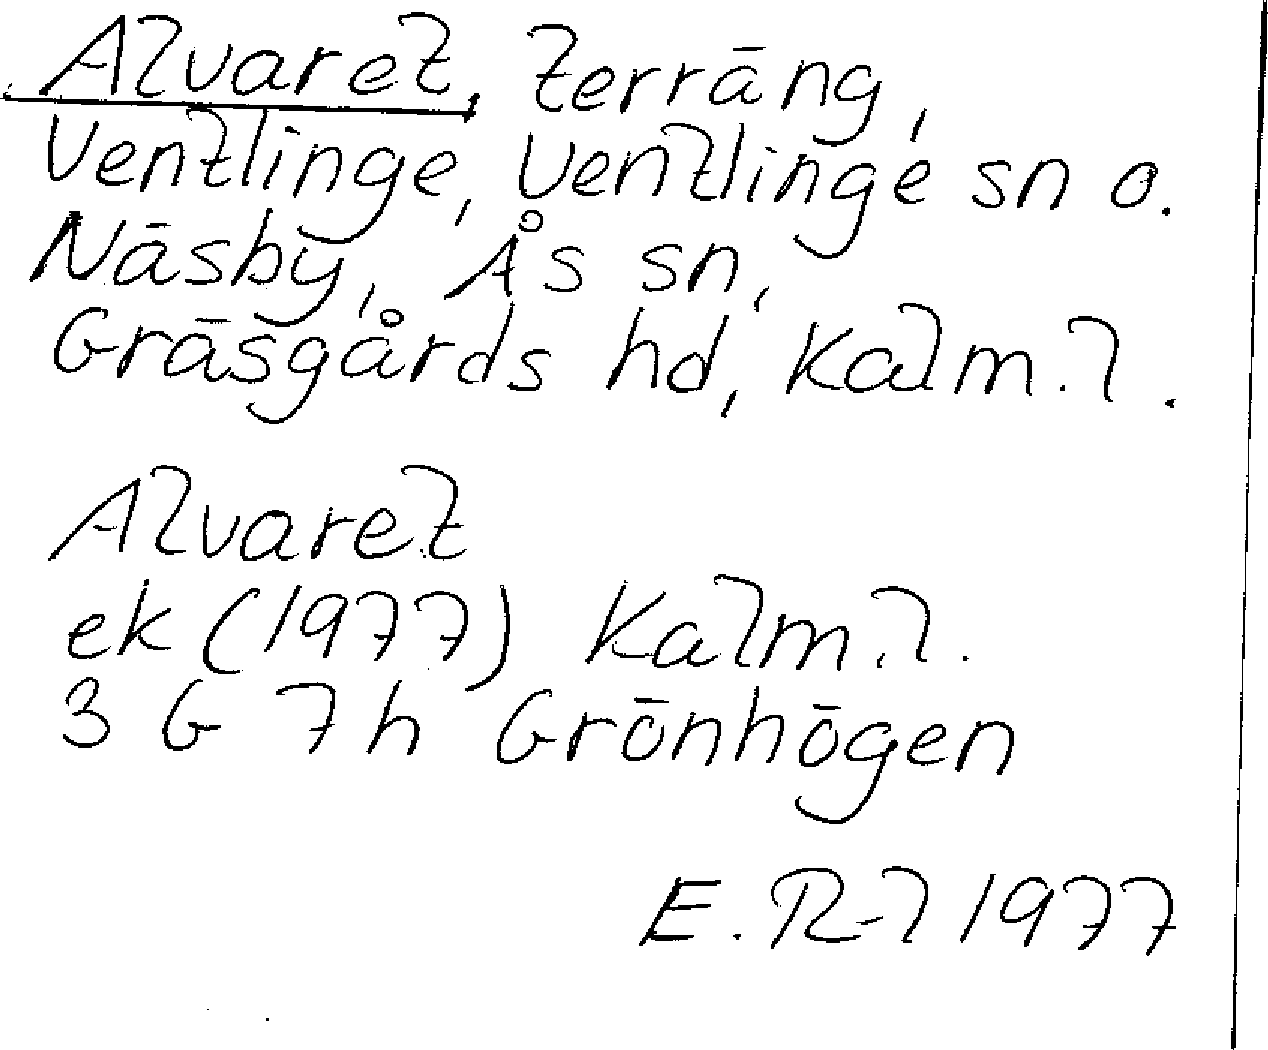 Alvaret, terräng,
Ventlinge, Ventlinge sn o.
Näsby, Ås sn,
Gräsgårds hd, Kalm. l.
Alvaret
ek (1977) Kalm. l.
3 G 7 h Grönhögen
E. R-l 1977